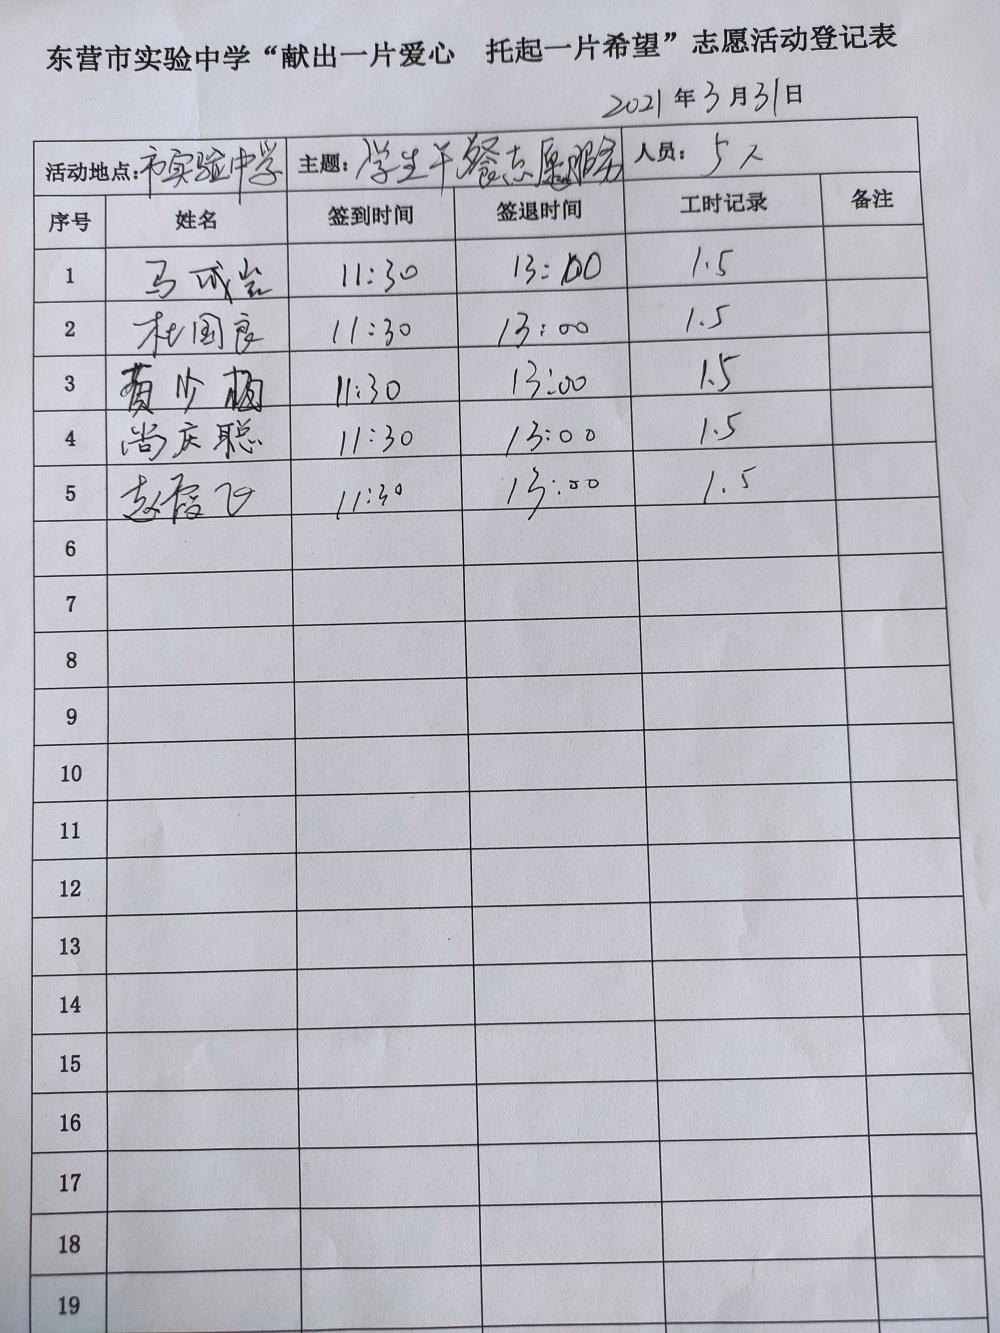 东营市实验中学“献出一片爱心 托起一片希望”志愿活动登记表
2021年3月31日
活动地点:市实验中学 主题:学生午餐志愿服务 人员:5人
序号 姓名 签到时间 签退时间 工时记录 备注
1 马成岩 11:30 13:00 1.5
2 杜国良 11:30 13:00 1.5
3 黄少梅 11:30 13:00 1.5
4 尚庆聪 11:30 13:00 1.5
5 赵霞飞 11:30 13:00 1.5
6
7
8
9
10
11
12
13
14
15
16
17
18
19